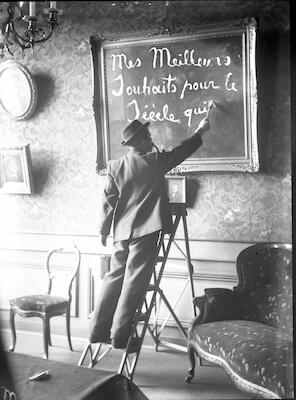 Mes Meilleurs
Souhaits pour le
Siècle qui